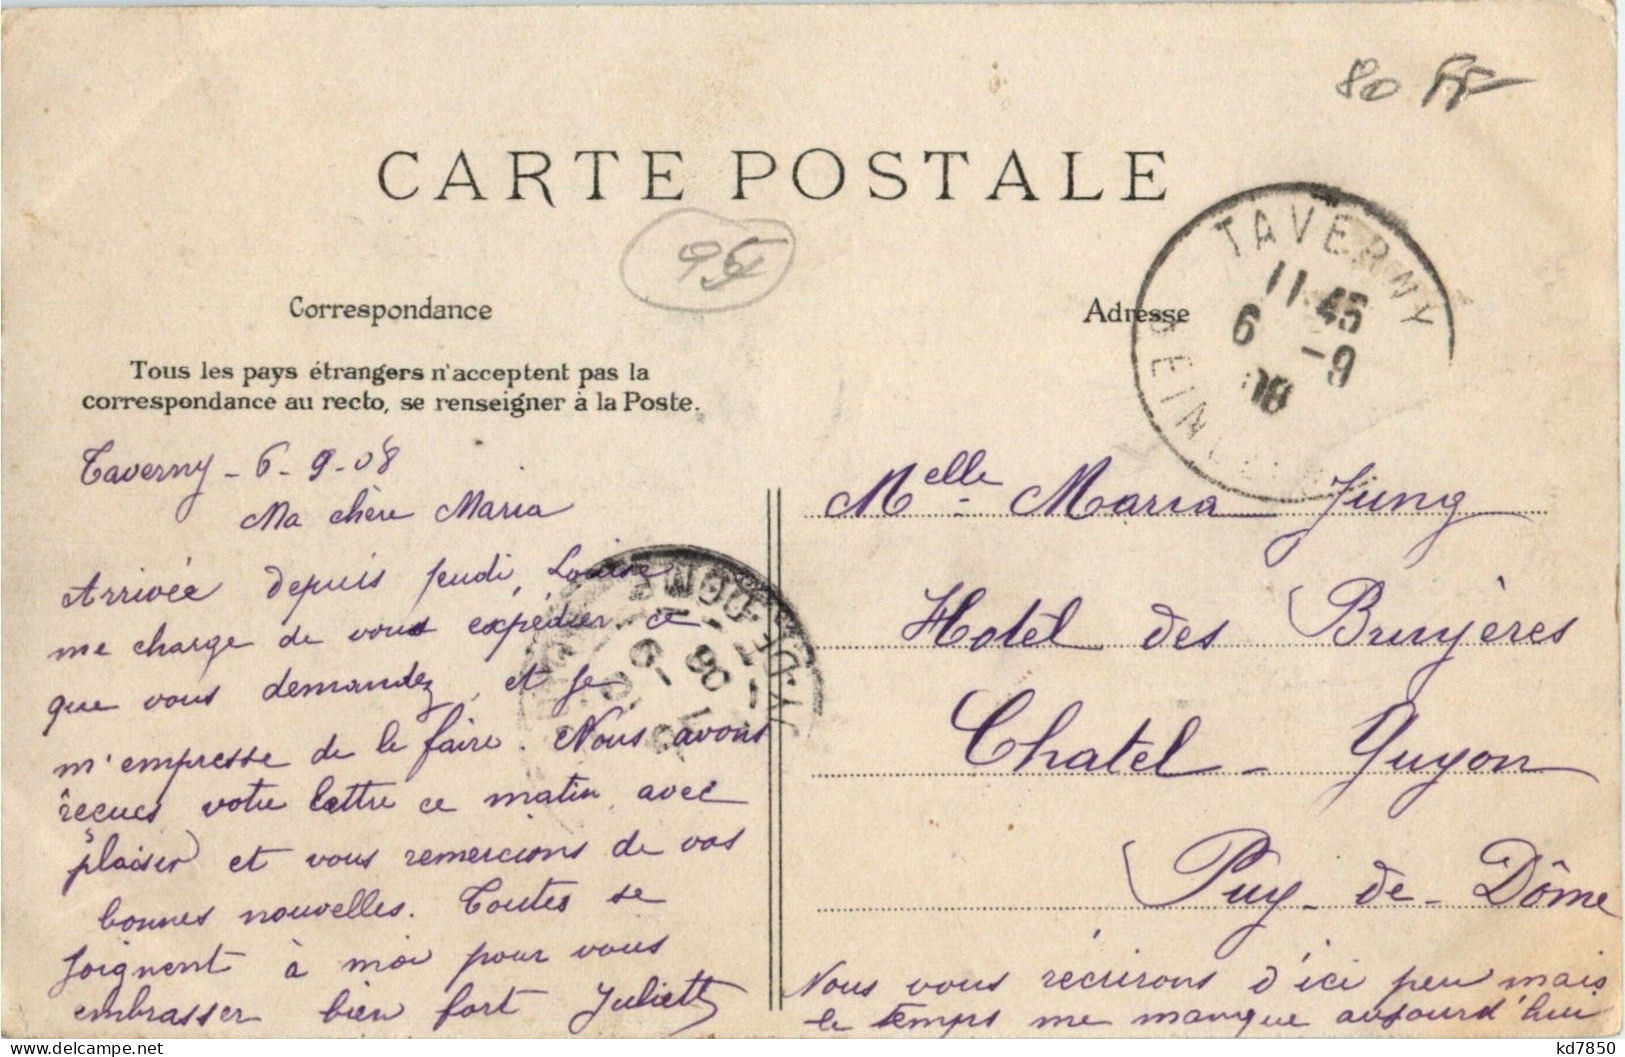 80 FF
CARTE POSTALE
95
Correspondance
Adresse
TAVERNY
11 45
6 -9
08
SEINE
Tous les pays étrangers n'acceptent pas la
correspondance au recto, se renseigner à la Poste.
Taverny - 6 - 9 - 08
Ma chère Maria
Arrivée depuis jeudi, Louise
me charge de vous expédier ce
que vous demandez, et je
m'empresse de le faire. Nous avons
reçues votre lettre ce matin avec
plaisir et vous remercions de vos
bonnes nouvelles. Toutes se
joignent à moi pour vous
embrasser bien fort Juliette
PUY-DE-DOME
7 -9
08
Melle Maria Jung
Hotel des Bruyères
Chatel - Guyon
Puy - de - Dôme
Nous vous récrirons d'ici peu mais
le temps me manque aujourd'hui
kd7850